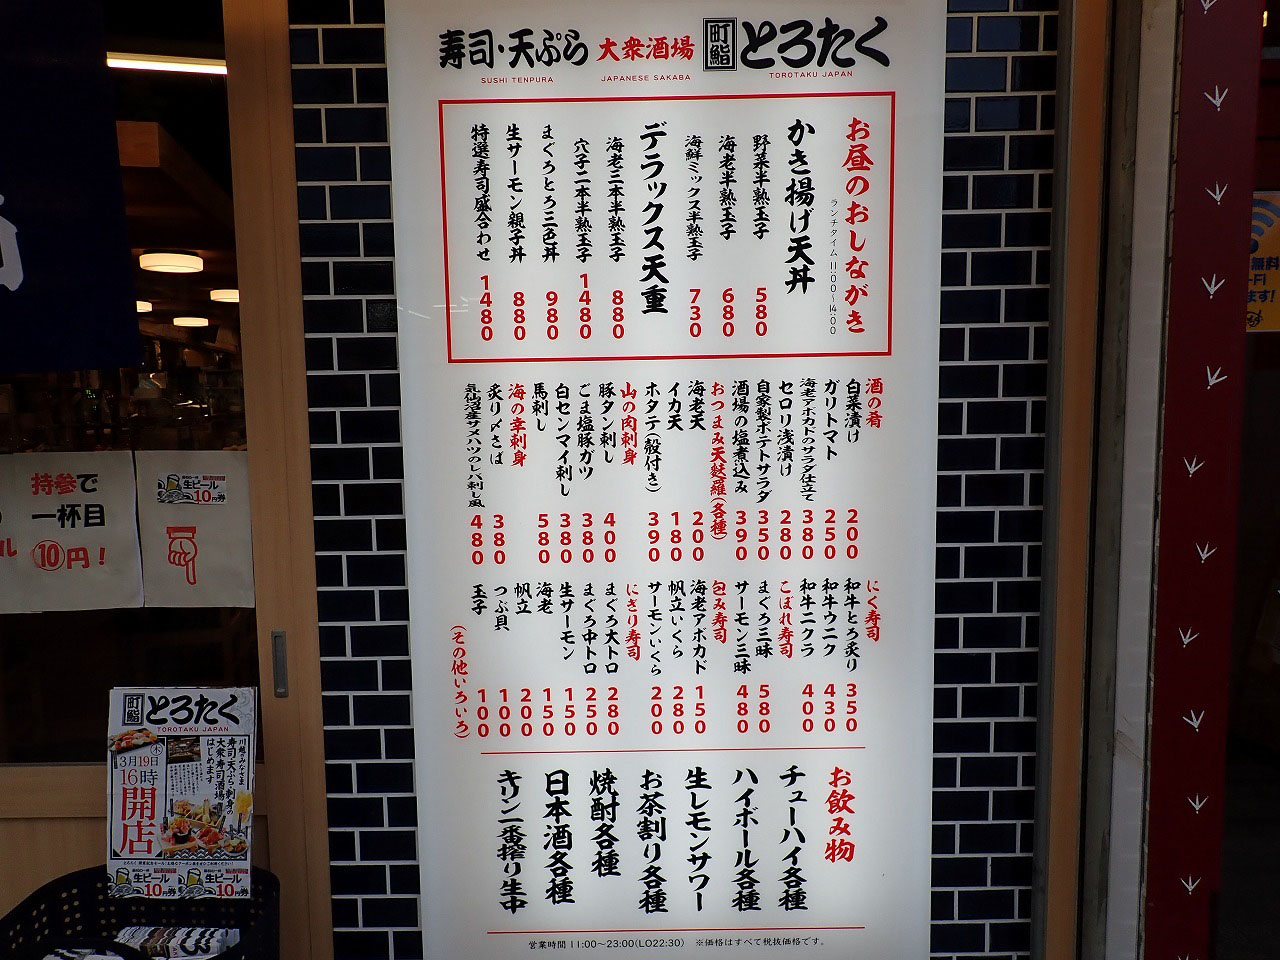 寿司・天ぷら 大衆酒場 町鮨 とろたく
SUSHI TENPURA JAPANESE SAKABA TOROTAKU JAPAN
お昼のおしながき
ランチタイム 11:00〜14:00
かき揚げ天丼
野菜半熟玉子 580
海老半熟玉子 680
海鮮ミックス半熟玉子 730
デラックス天重
海老三本半熟玉子 880
穴子二本半熟玉子 1480
まぐろとろ三色丼 980
生サーモン親子丼 880
特選寿司盛合わせ 1480
酒の肴
白菜漬け 200
ガリトマト 250
海老アボカドのサラダ仕立て 380
セロリ浅漬け 280
自家製ポテトサラダ 350
酒場の塩煮込み 390
おつまみ天麩羅(各種)
海老天 200
イカ天 180
ホタテ(殻付き) 390
山の肉刺身
豚タン刺し 400
ごま塩豚ガツ 380
白センマイ刺し 380
馬刺し 580
海の幸刺身
炙り〆さば 380
気仙沼産サメハツのレバ刺し風 480
にく寿司
和牛とろ炙り 350
和牛ウニク 430
和牛ニクラ 400
こぼれ寿司
まぐろ三昧 580
サーモン三昧 480
包み寿司
海老アボカド 150
帆立いくら 280
サーモンいくら 200
にぎり寿司
まぐろ大トロ 280
まぐろ中トロ 250
生サーモン 150
海老 150
帆立 200
つぶ貝 100
玉子 100
(その他いろいろ)
お飲み物
チューハイ各種
ハイボール各種
生レモンサワー
お茶割り各種
焼酎各種
日本酒各種
キリン一番搾り生中
営業時間 11:00〜23:00(LO22:30) ※価格はすべて税抜価格です。
持参で
一杯目
ル 10円!
生ビール
10円券
町鮨 とろたく
TOROTAKU JAPAN
川越のみなさま
寿司・天ぷら・刺身の
大衆寿司酒場
はじめます
3月19日 木
16時
開店
生ビール
10円券
生ビール
10円券
無料
-Fi
ます!